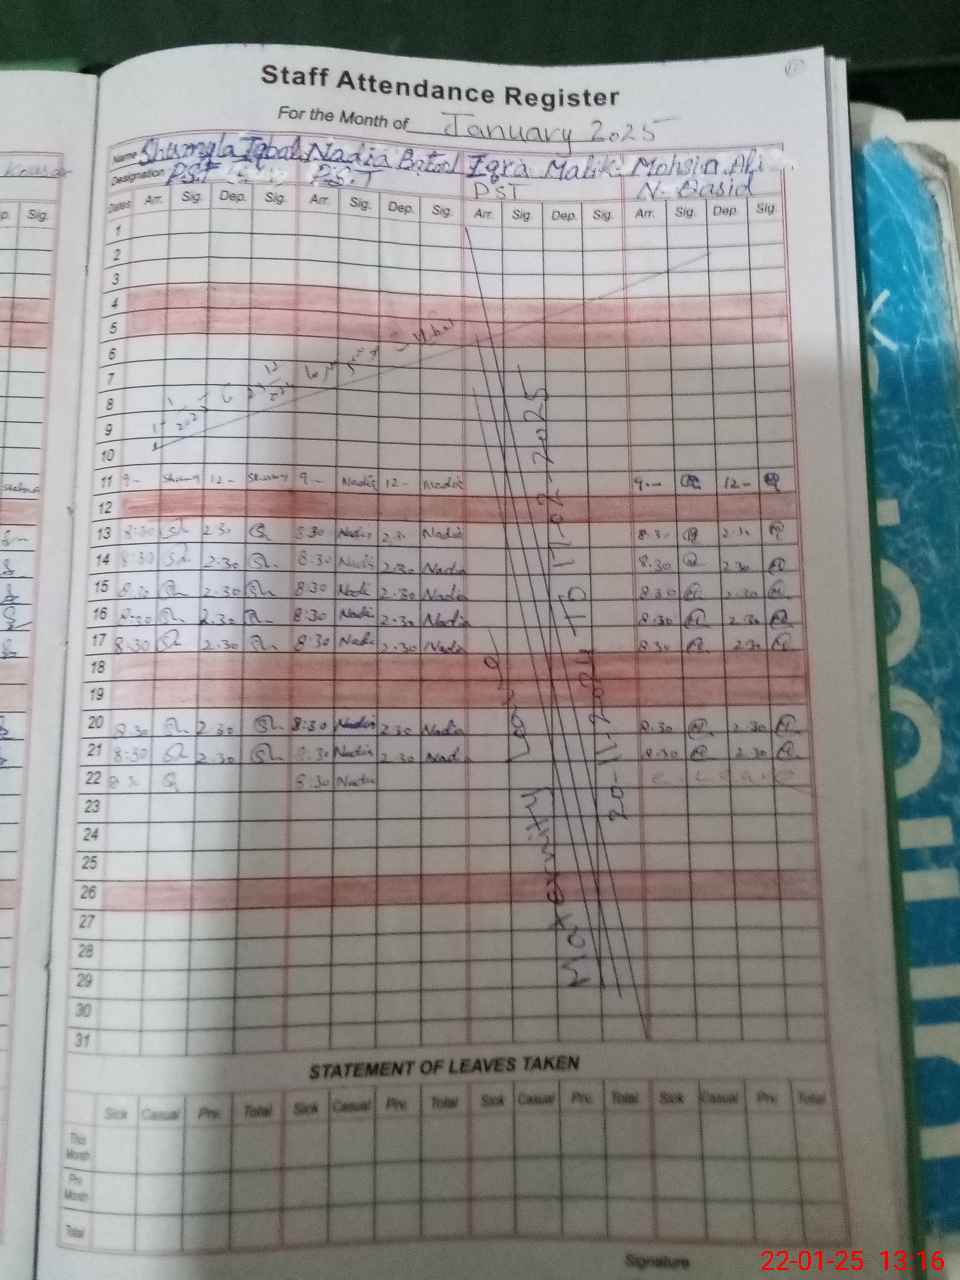 Staff Attendance Register
For the Month of January 2025
Name Shumyla Iqbal Nadia Batol Iqra Malik Mohsin Ali
Designation P.S.T P.S.T PST N. Qasid
Dates Arr. Sig. Dep. Sig. Arr. Sig. Dep. Sig. Arr. Sig. Dep. Sig. Arr. Sig. Dep. Sig.
Sig.
1
2
3
4
5
6
7
8
9
10
11 9- 12- 9- Nadia 12- Nadia 9-- 12-
12
13 8:30 2.30 8.30 Nadia 2.30 Nadia 8.30 2.30
14 8:30 2.30 8.30 Nadia 2.30 Nadia 8.30 2.30
15 8.30 2.30 8:30 Nadi 2.30 Nadia 8.30 2.30
16 8:30 2.30 8:30 Nadi 2.30 Nadia 8.30 2.30
17 8:30 2.30 8:30 Nadi 2.30 Nadia 8.30 2.30
18
19
20 8.30 2.30 8:30 Nadia 2.30 Nadia 8.30 2.30
21 8:30 2.30 8.30 Nadia 2.30 Nadia 8.30 2.30
22 8:30 Nadia
23
24
25
26
27
28
29
30
31
Maternity Leave
20-11-2024 TO 17-02-2025
STATEMENT OF LEAVES TAKEN
Sick Casual Prv. Total Sick Casual Prv. Total Sick Casual Prv. Total Sick Casual Prv. Total
This Month
Prv. Month
Total
Signature
22-01-25 13:16